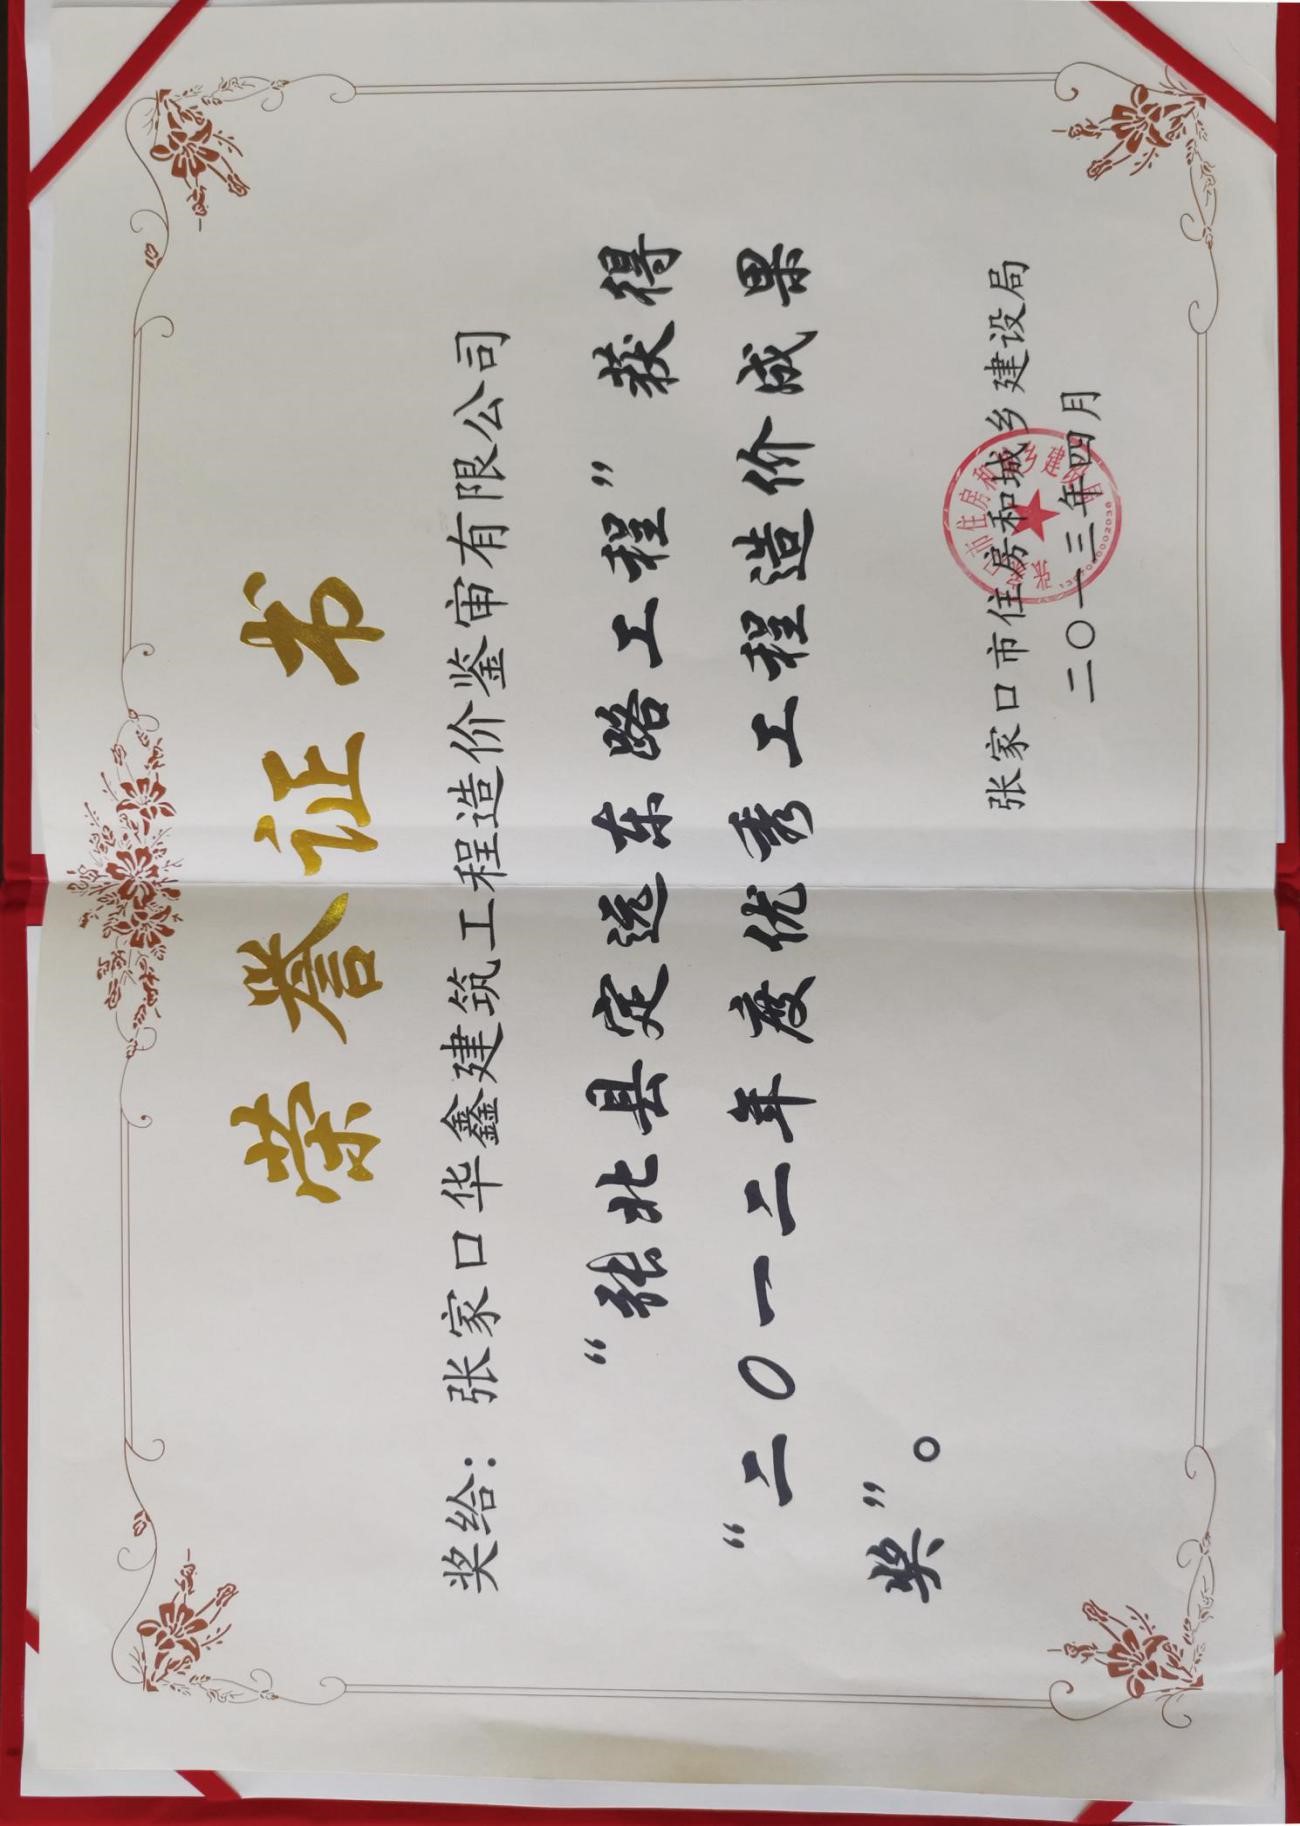 荣誉证书
奖给：张家口华鑫建筑工程造价鉴审有限公司
“张北县定远东路工程”获得
“二〇一二年度优秀工程造价成果
奖”。
张家口市住房和城乡建设局
二〇一三年四月